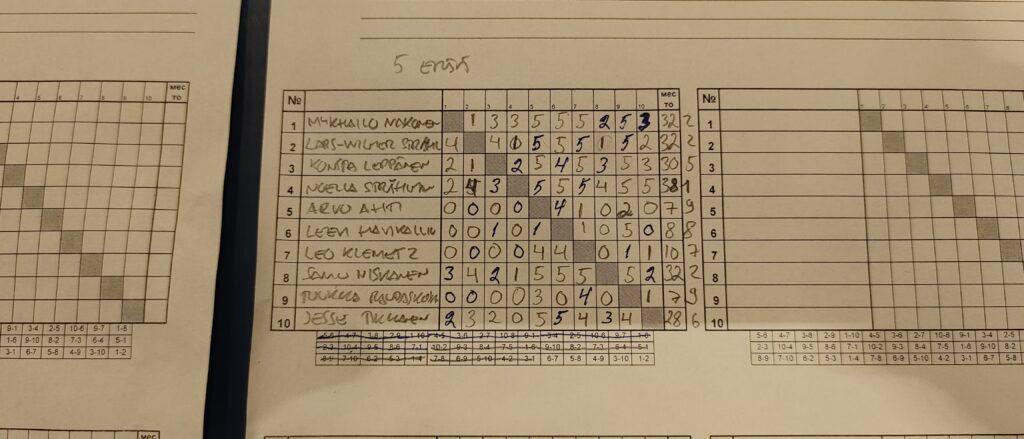 5 ERÄ
№ 1 2 3 4 5 6 7 8 9 10 мес то
1 1 3 3 5 5 5 2 5 3 32 2
2 LARS-WILMER 4 4 0 5 5 5 1 5 2 32 2
3 KONSTA LEPPÄNEN 2 1 2 5 4 5 3 5 3 30 5
4 NOELLA 2 4 3 5 5 5 4 5 5 38 1
5 ARVO AHTI 0 0 0 0 4 1 0 2 0 7 9
6 LEEVI 0 0 1 0 1 1 0 5 0 8 8
7 LEO KLEMETZ 0 0 0 0 4 4 0 1 1 10 7
8 SAMU NISKANEN 3 4 2 1 5 5 5 5 2 32 2
9 TUUKKA 0 0 0 0 3 0 4 0 1 7 9
10 JESSE 2 3 2 0 5 5 4 3 4 28 6
№
1
2
3
4
5
6
7
8
9
10
9-1 3-4 2-5 10-6 9-7 1-8
1-6 9-10 8-2 7-3 6-4 5-1
3-1 6-7 5-8 4-9 3-10 1-2
5-6 4-7 3-8 2-9 1-10 4-5 3-6 2-7 10-8 9-1 3-4 2-5 10-6 9-7 1-8
2-3 10-4 9-5 8-6 7-1 10-2 9-3 8-4 7-5 1-6 9-10 8-2 7-3 6-4 5-1
8-9 7-10 6-2 5-3 1-4 7-8 6-9 5-10 4-2 3-1 6-7 5-8 4-9 3-10 1-2
5-6 4-7 3-8 2-9 1-10 4-5 3-6 2-7 10-8 9-1 3-4 2-5 10-6
2-3 10-4 9-5 8-6 7-1 10-2 9-3 8-4 7-5 1-6 9-10 8-2 7-3
8-9 7-10 6-2 5-3 1-4 7-8 6-9 5-10 4-2 3-1 6-7 5-8